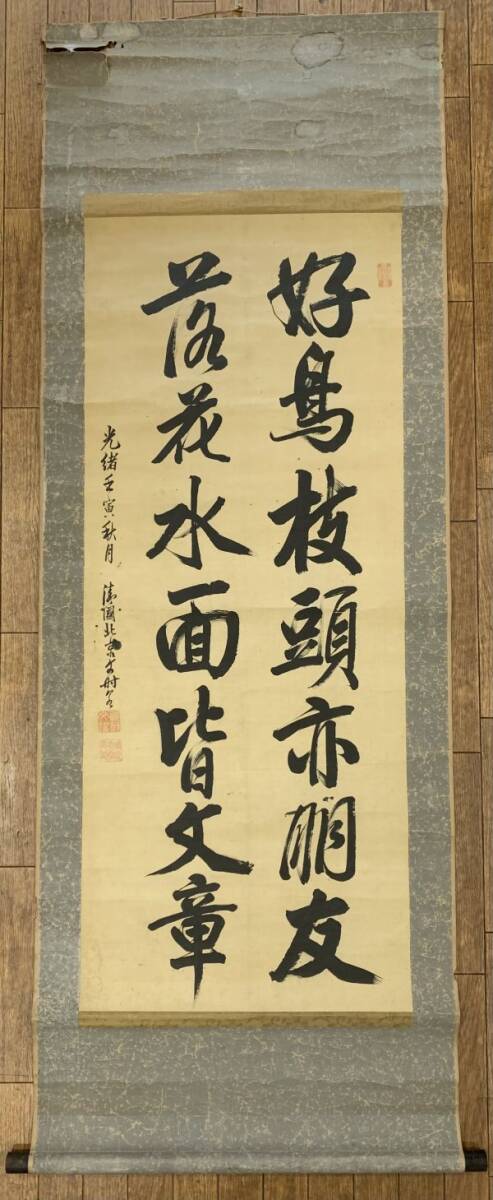 好鳥枝頭亦朋友
落花水面皆文章
光緒壬寅秋月 清國北京